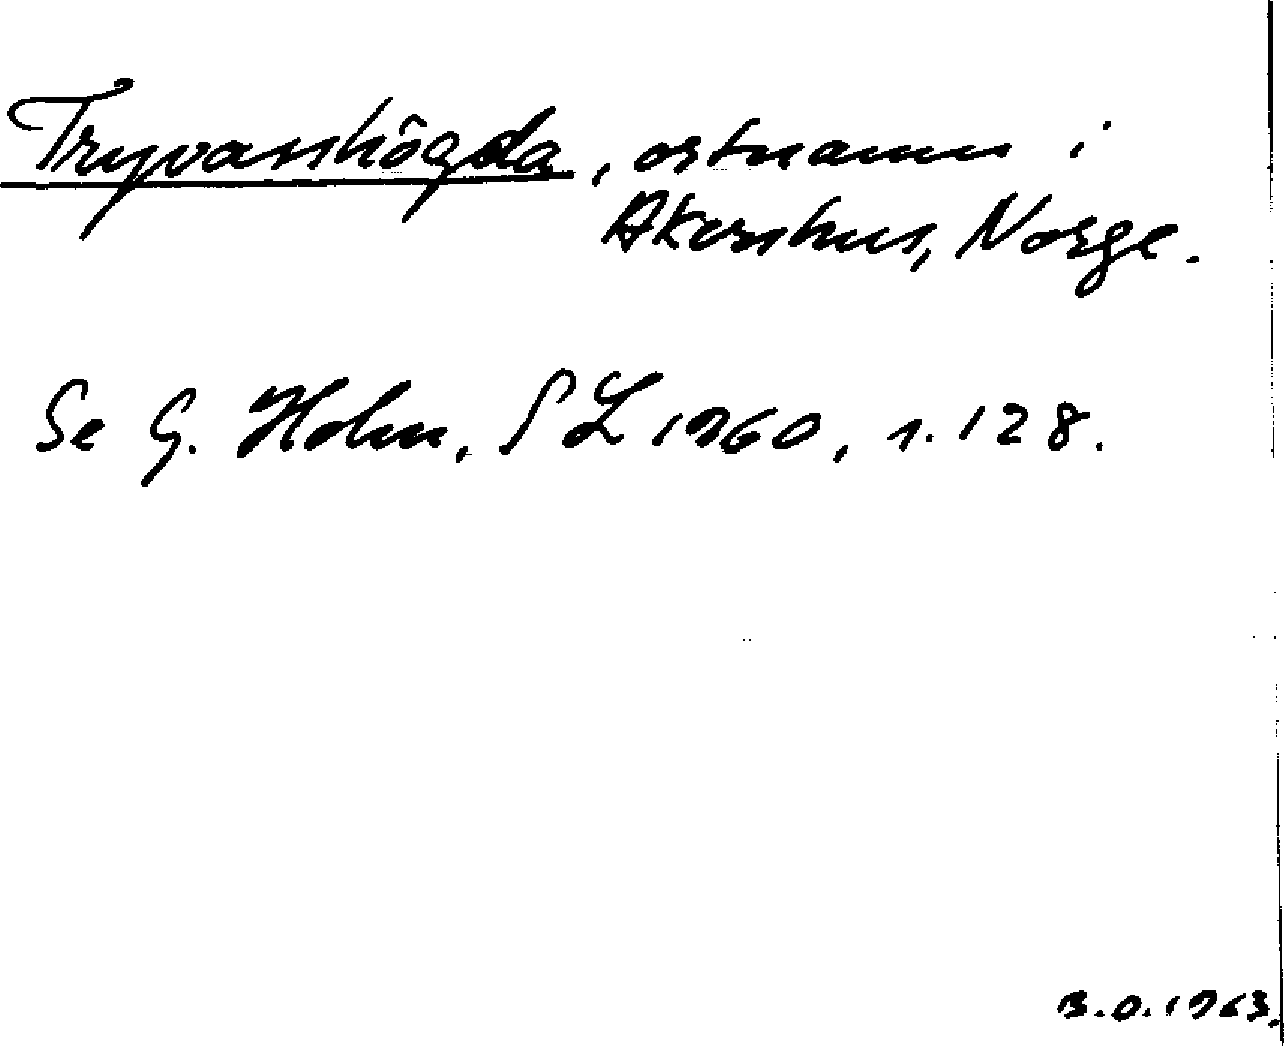 Tryvasshögda, ortnamn i
Akershus, Norge.
Se G. Holm, SL 1960, s. 128.
B.O. 1963.